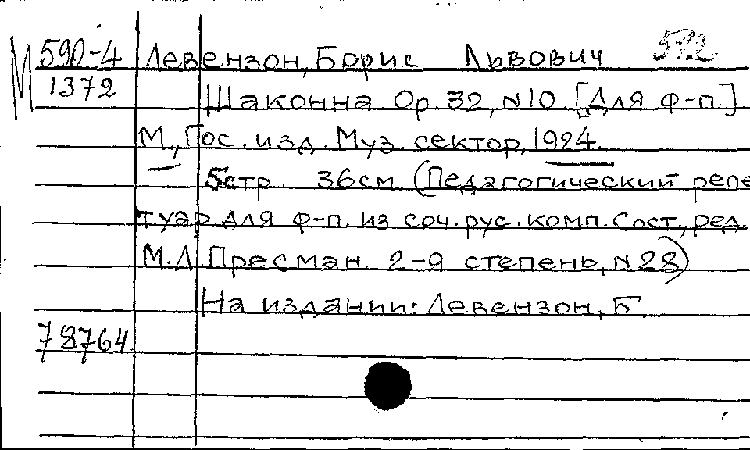 М 590-4 Левензон, Борис Львович 572
1372
Шаконна Ор. 32, №10 [Для ф-п]
М., Гос. изд. Муз. сектор, 1924.
5 стр. 36 см (Педагогический репе
туар для ф-п. из соч. рус. комп. Сост., ред.
М.Л Пресман. 2-я степень, №28)
На издании: Левензон, Б.
78764